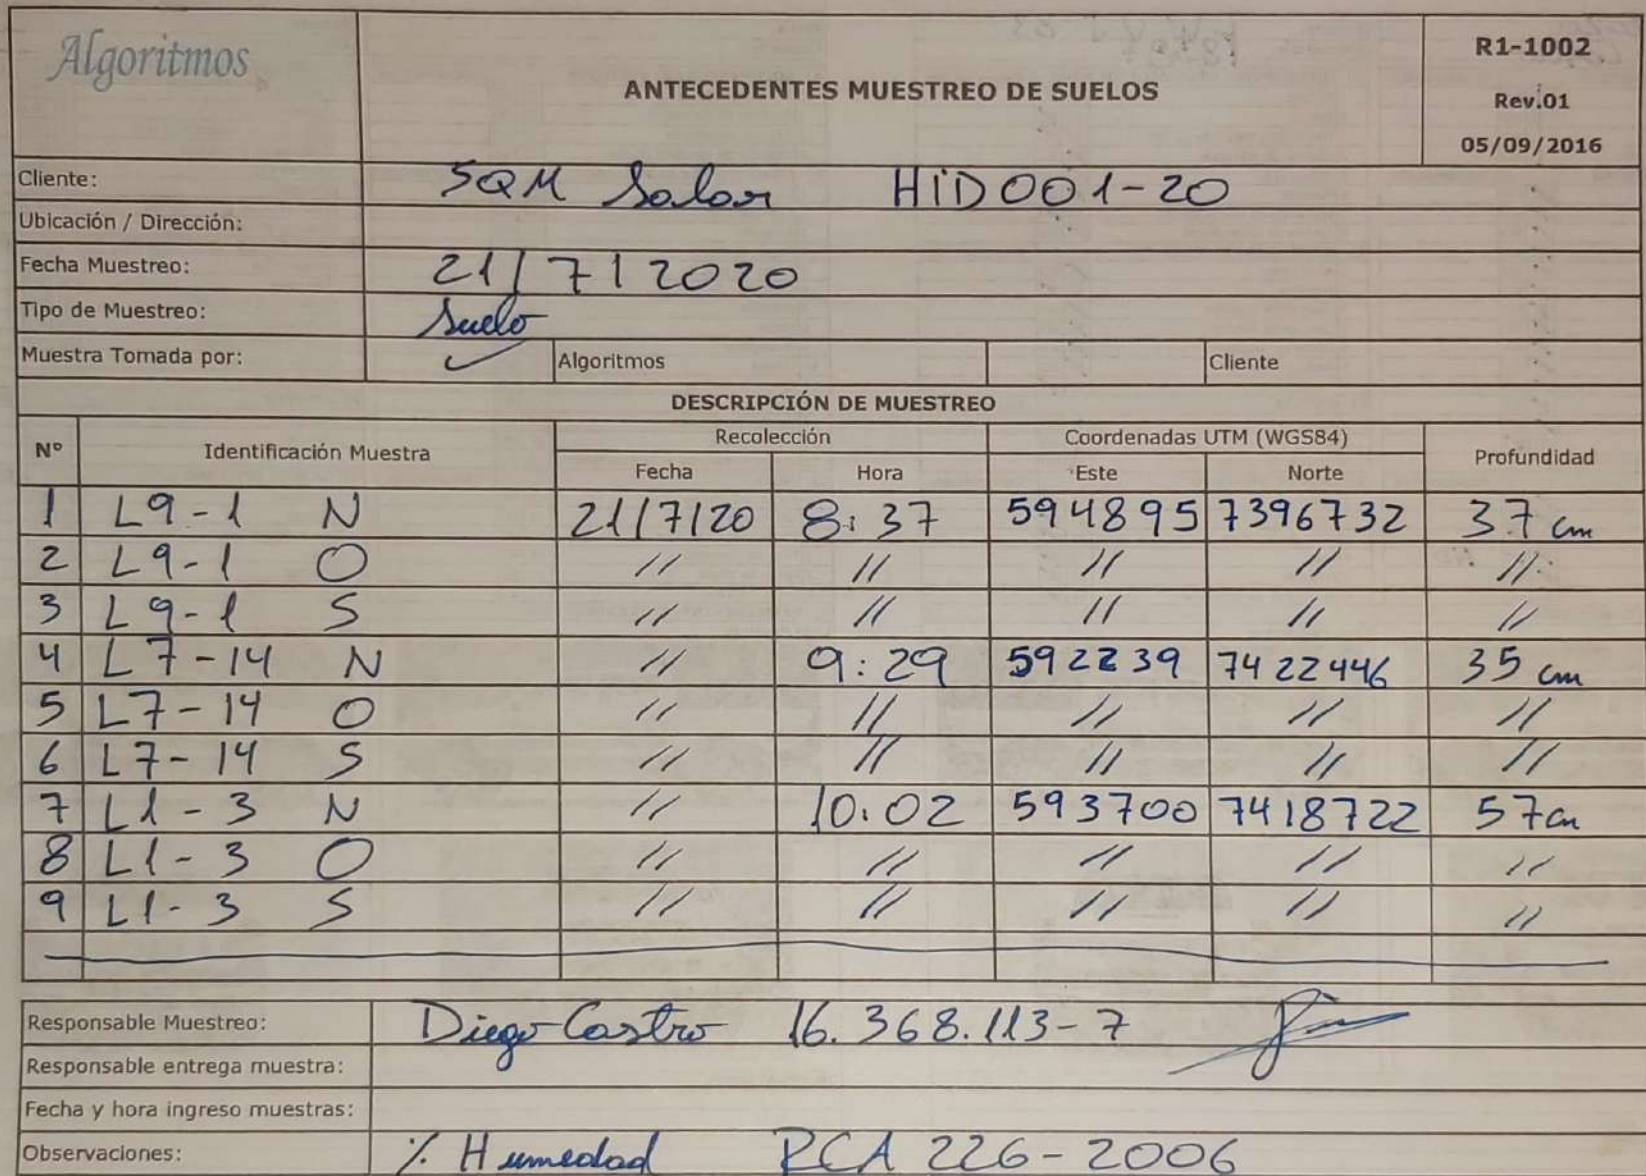 Algoritmos
ANTECEDENTES MUESTREO DE SUELOS
R1-1002
Rev.01
05/09/2016
Cliente: SQM Salar HID001-20
Ubicación / Dirección:
Fecha Muestreo: 21/7/2020
Tipo de Muestreo: Suelo
Muestra Tomada por: ✓ Algoritmos Cliente
DESCRIPCIÓN DE MUESTREO
Nº Identificación Muestra Recolección Coordenadas UTM (WGS84) Profundidad
Fecha Hora Este Norte
1 L9-1 N 21/7/20 8:37 594895 7396732 37 cm
2 L9-1 O // // // // //
3 L9-1 S // // // // //
4 L7-14 N // 9:29 592239 7422446 35 cm
5 L7-14 O // // // // //
6 L7-14 S // // // // //
7 L1-3 N // 10:02 593700 7418722 57 cm
8 L1-3 O // // // // //
9 L1-3 S // // // // //
Responsable Muestreo: Diego Castro 16.368.113-7
Responsable entrega muestra:
Fecha y hora ingreso muestras:
Observaciones: % Humedad RCA 226-2006